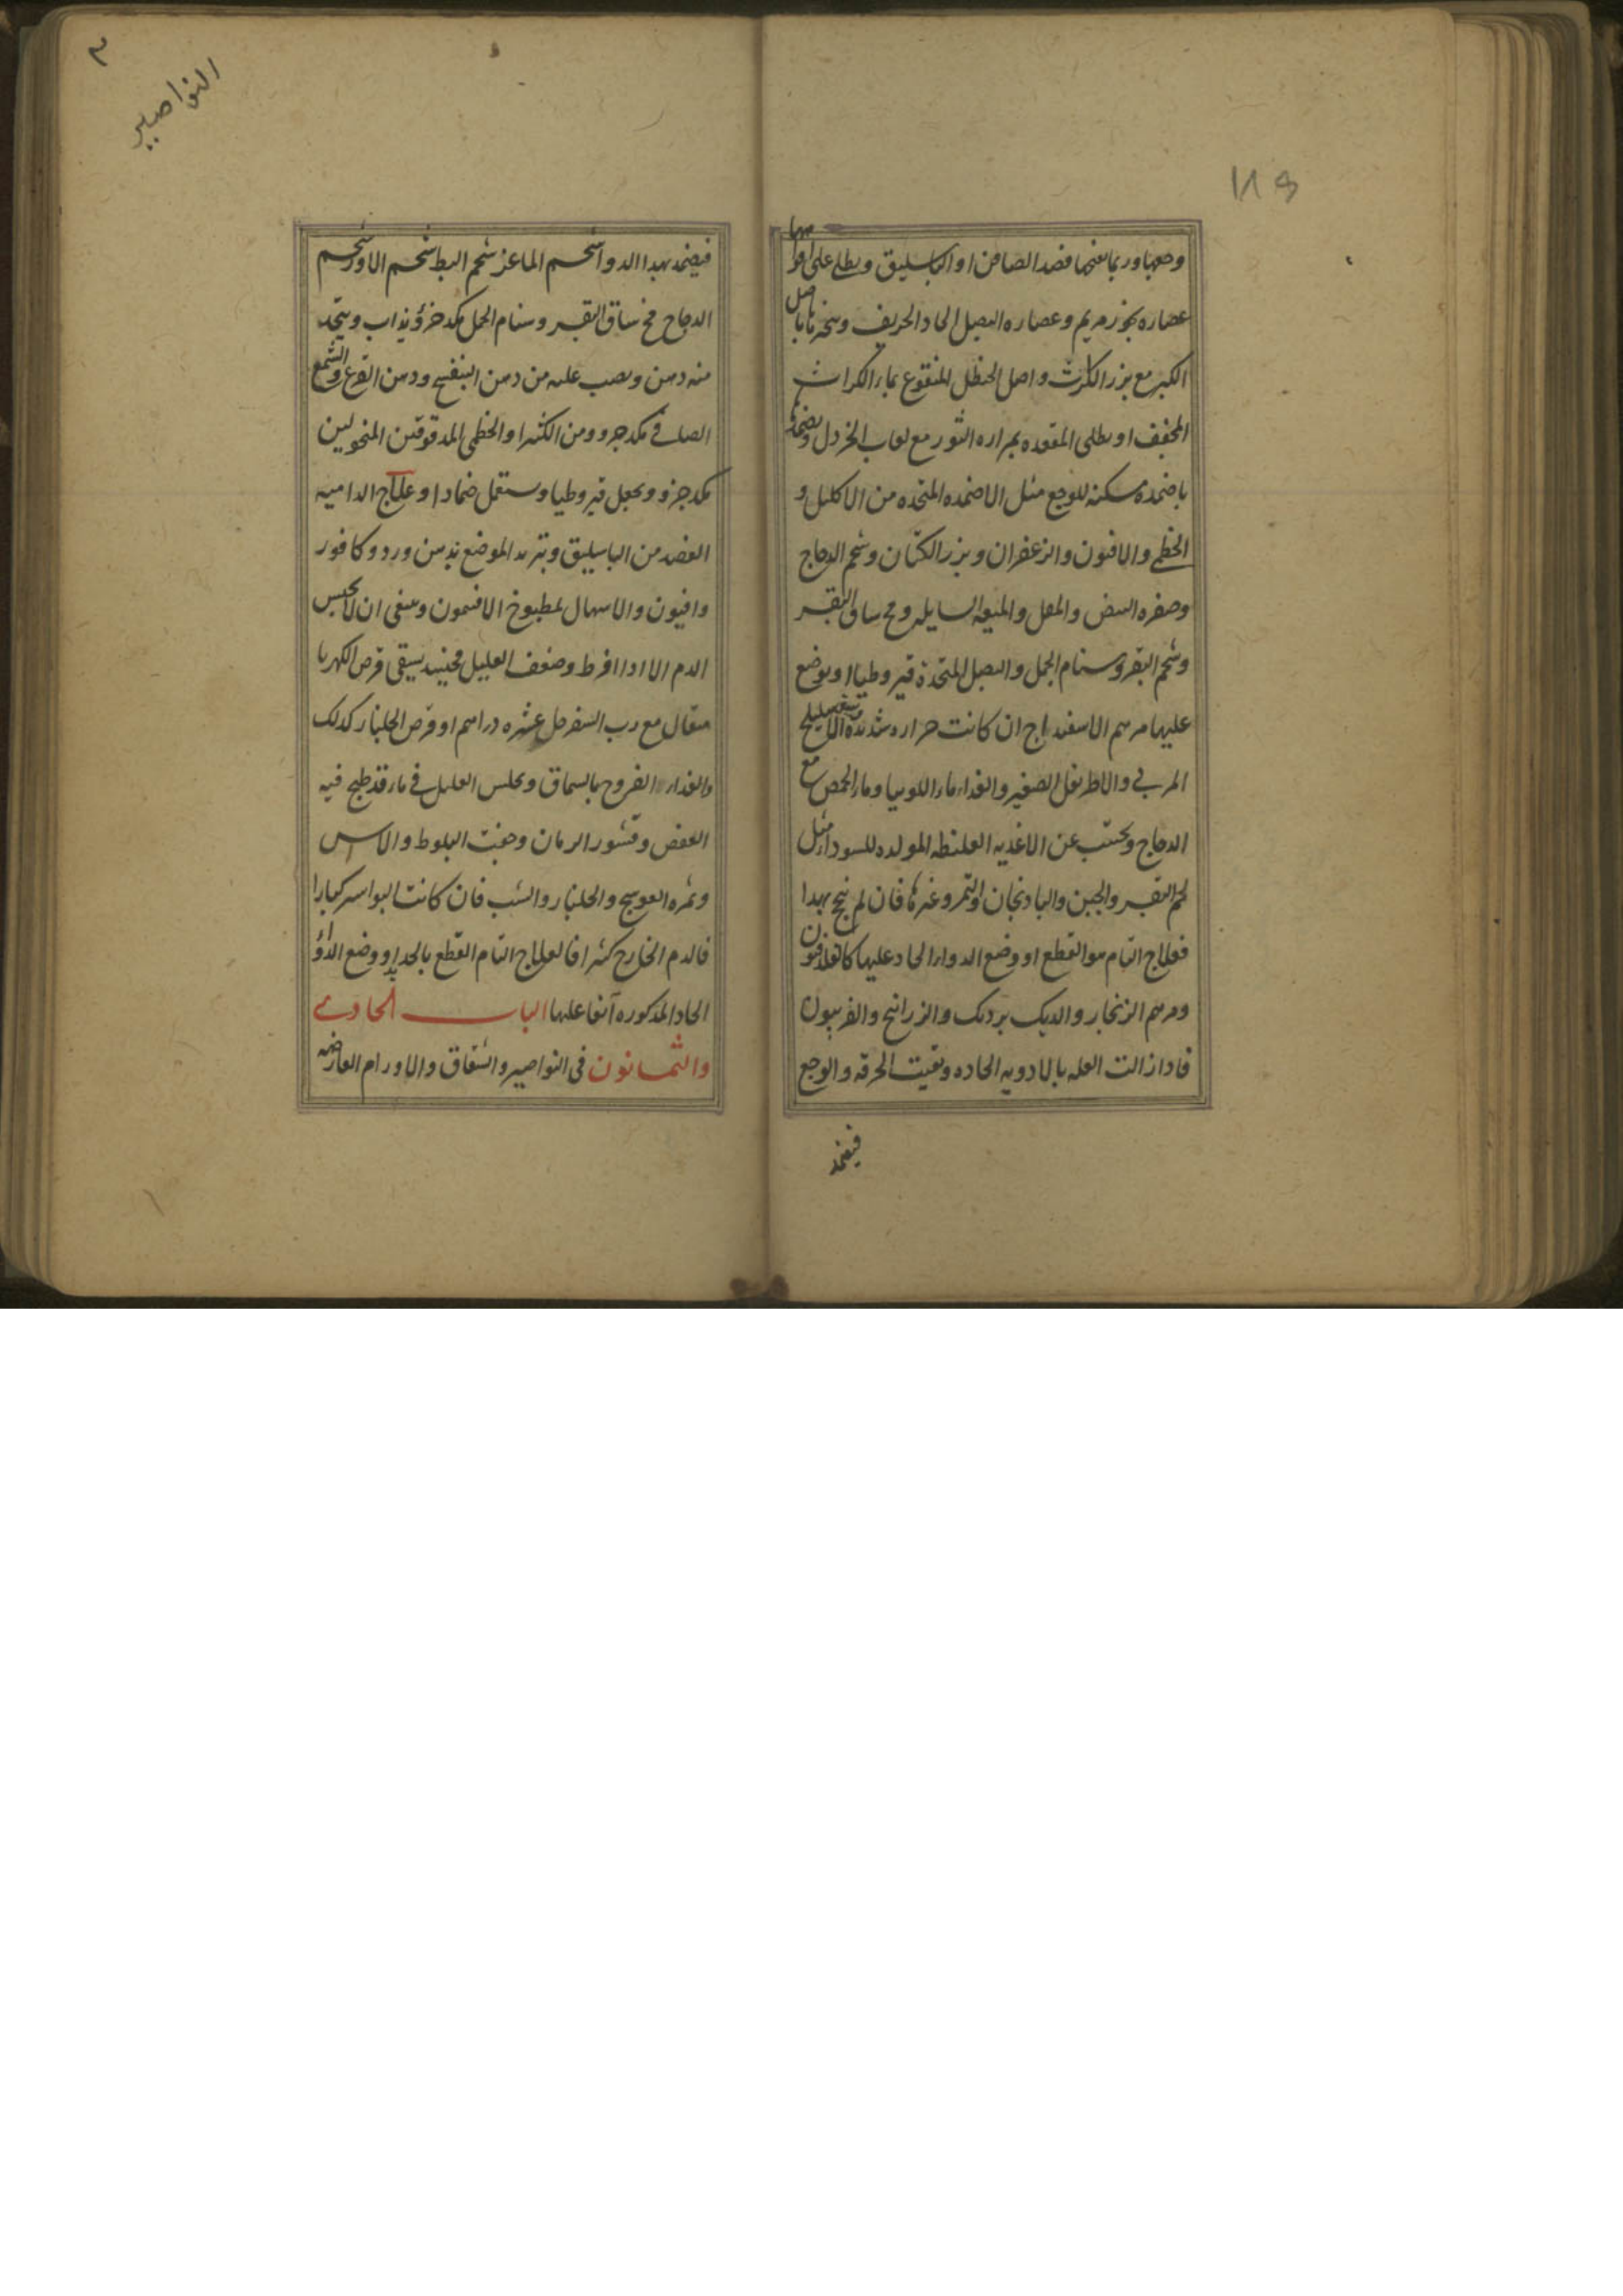 ١١٩
وجهها وربما نفعها فصد الصافن او الباسليق ويطلى على افواهها
عصاره بخور مريم وعصاره البصل الحاد الحريف وبخرها باصل
الكبر مع بزر الكراث واصل الحنظل المنقوع بماء الكراث
المجفف او يطلى المقعده بمراره الثور مع لعاب الخردل ويضمدها
باضمدة مسكنه للوجع مثل الاضمده المتخده من الاكليل و
الخطمى والافيون والزعفران وبزر الكتان وشحم الدجاج
وصفره البيض والمقل والميعه السايله ومخ ساق البقر
وشحم البقر وسنام الجمل والبصل المتخدة قيروطيا او يوضع
عليها مرهم الاسفنداج ان كانت حراره شديدة الاهليلج
المربى والاطريفل الصغير والغداء ماء اللوبيا وماء الحمص مع
الدجاج ويجتنب عن الاغديه الغليظه المولده للسوداء مثل
لحم البقر والجبن والبادنجان والتمر وغيرها فان لم ينجح بهدا
فعلاج التام هو القطع او وضع الدواء الحاد عليها كالفلدفيون
ومرهم الزنجار والديك برديك والزرانيخ والفربيون
فادا زالت العله بالادويه الحاده وبقيت الحرقه والوجع
فيضمد
النواصير
فيضمد بهدا الدوا شحم الماعز شحم البط شحم الاوز شحم
الدجاج مخ ساق البقر وسنام الجمل مكد جزؤ يذاب ويتخد
منه دهن ويصب عليه من دهن البنفسج ودهن القرع والشمع
الصافى مكد جرو ومن الكثيرا والخطمى المدقوقين المنخولين
مكد جزو ويجعل قيروطيا ويستعمل ضمادا وعلاج الداميه
الفصد من الباسليق وتبريد الموضع بدهن ورد وكافور
وافيون والاسهال بمطبوخ الافتيمون وينبغى ان لا يحبس
الدم الا ادا افرط وضعف العليل فحينيد يسقى قرص الكهربا
مثقال مع رب السفرجل عشره دراهم او قرص الجلنار كدلك
والغداء الفروج بالسماق ويجلس العليل فى ماء قد طبخ فيه
العفص وقشور الرمان وجفت البلوط والاس
وثمره العوسج والجلنار والشب فان كانت البواسير كبارا
فالدم الخارج كثيرا فالعلاج التام القطع بالحديد او وضع الدواء
الحاد المدكوره آنفا عليها الباب الحادى
والثمانون فى النواصير والشقاق والاورام العارضه